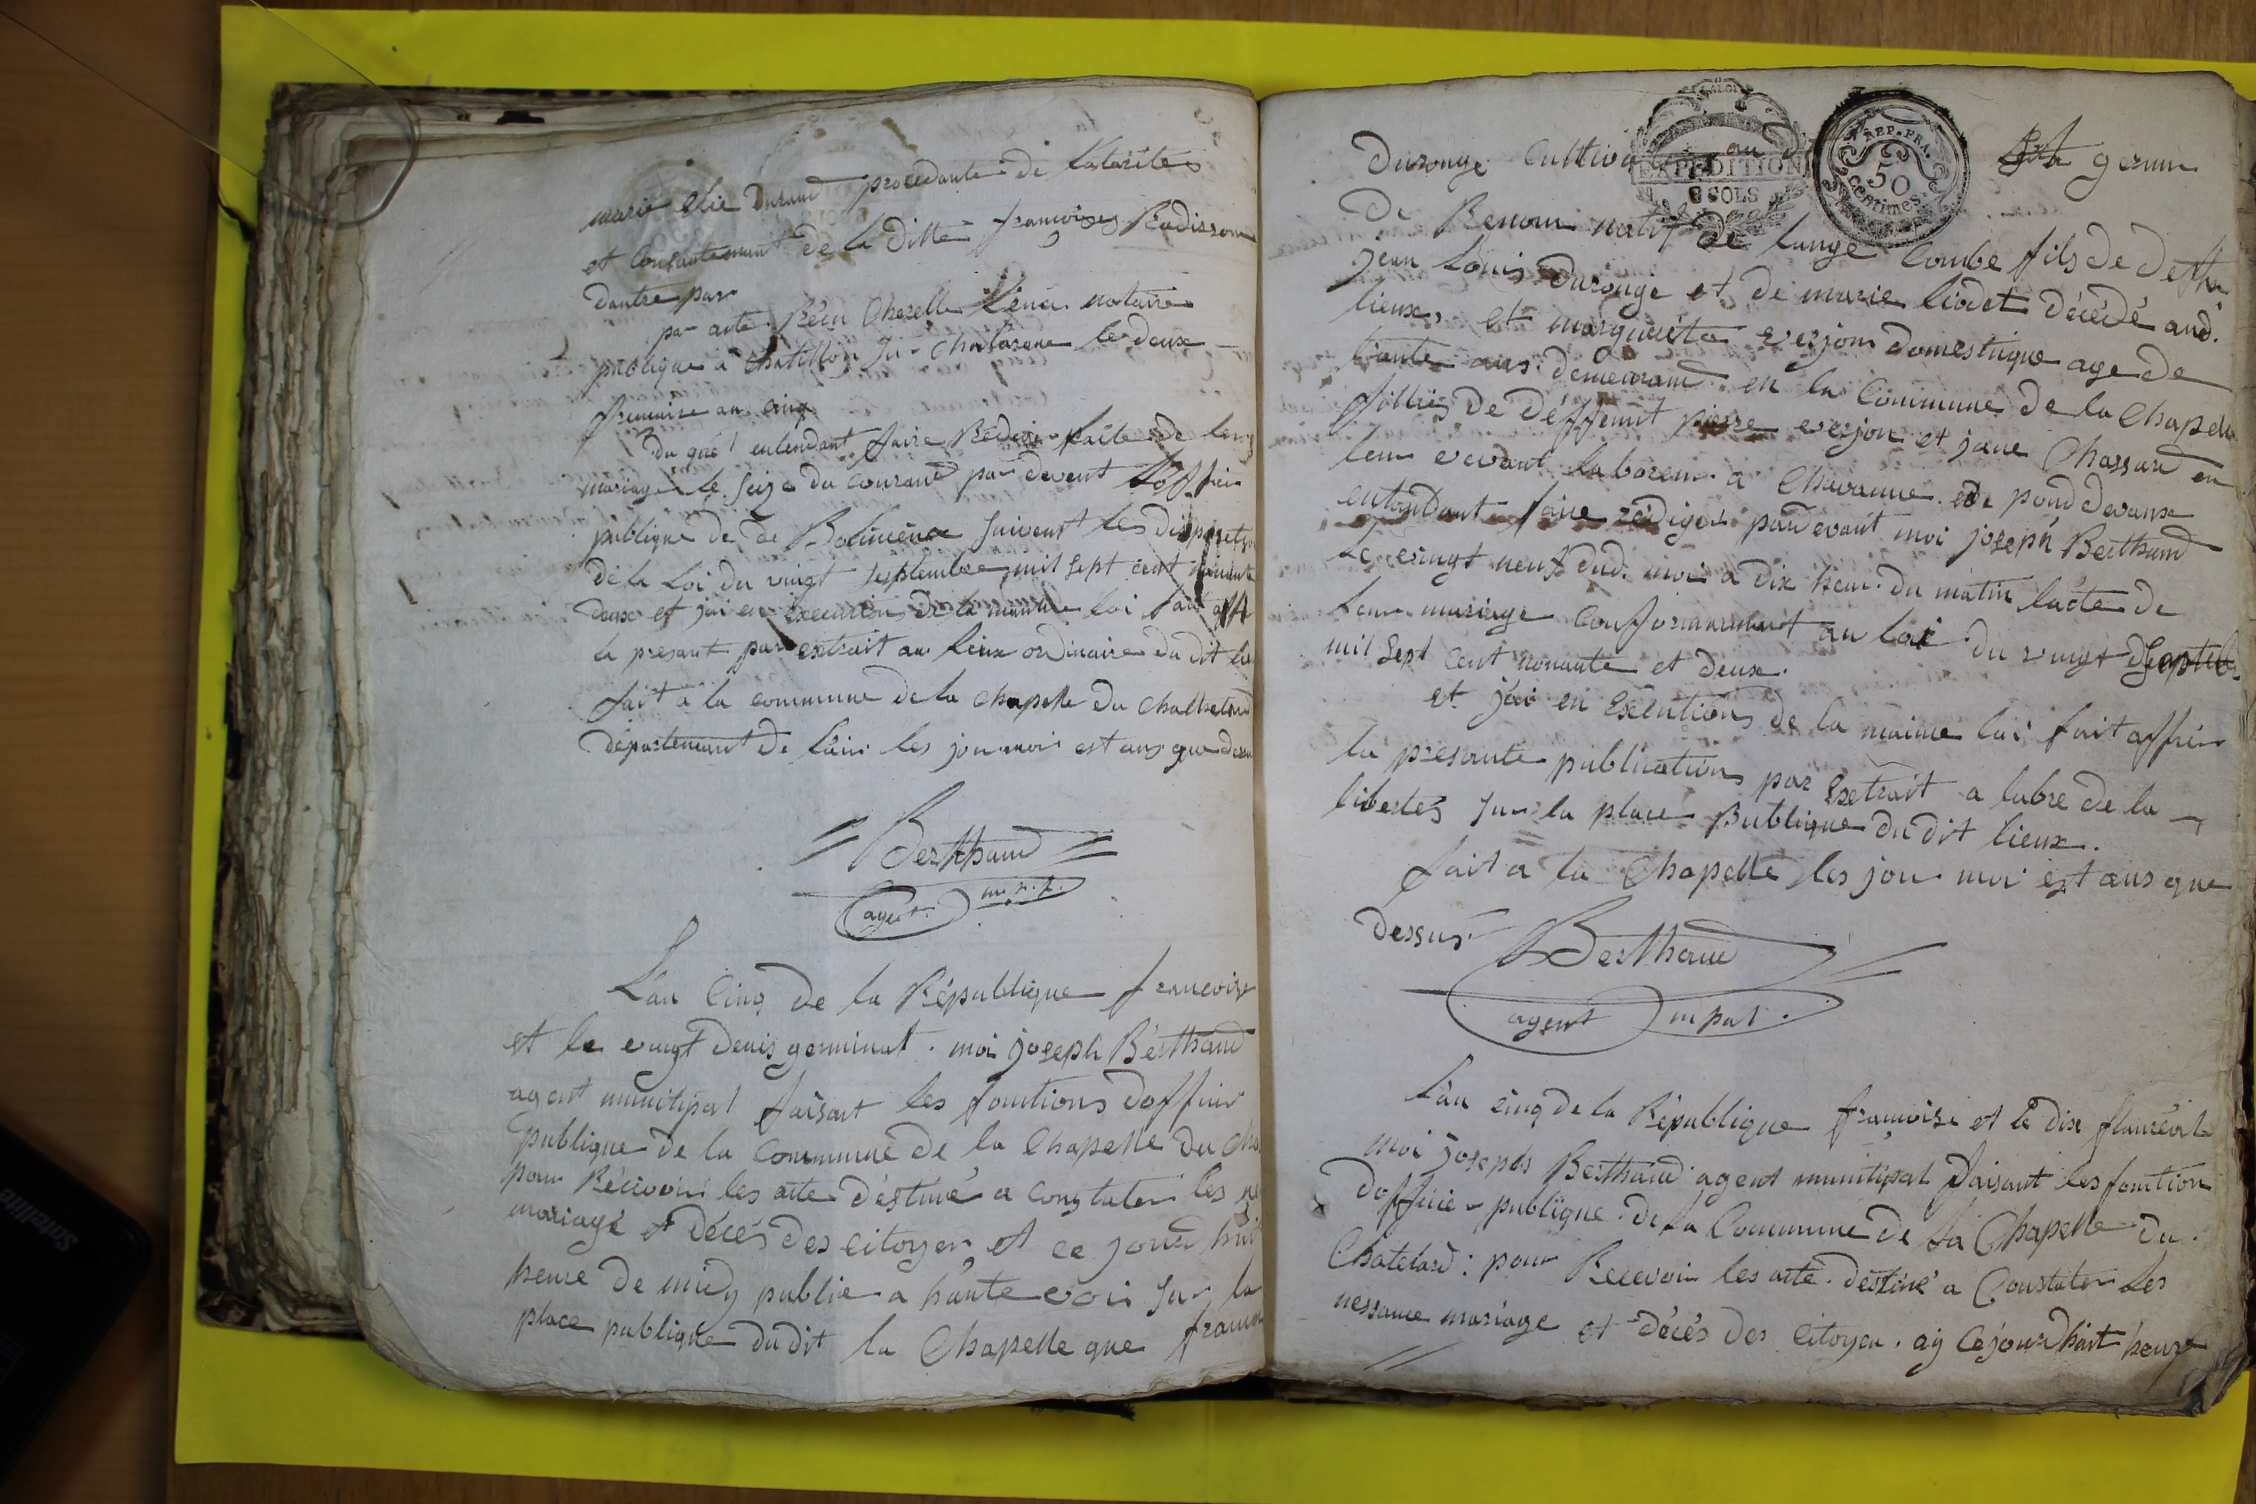 marie elie Durand procedante de Latoritées
et Consantemant de la ditte francoises Radisson
dantre par
par acte Recu Cherelle Léné notaire
publique à Chatillon sur Chalarone le deux
frimaire an cinq
du quel entendant faire Rediger lacte de leur
mariage le seize du courand par devent Loffisier
publique de de suivent les
de la Loi du vingt septembre mil sept cent nonante
deux et jai en execution de la maime loi fait aff
le presant par extrait au lieux ordinaire du dit lie
fait a la commune de la chapelle du Chattelard
departemant de lain les jour moi est ans que dess
Berthaud
agent m.p.l.
Lan Cinq de la République francoise
et le vingt deuis germinal. moi joseph Berthaud
agent munitipal faisant les fonctions doffisier
publique de la Commune de la Chapelle du Cha
pour Récevoir les acte déstiné a constater les ne
mariage et décés des citoyen et ce jourd hui
heure de midy publié a haute voix sur la
place publique du dit la Chapelle que francoi
Durouge Cultiva au
EXPEDITION
8 SOLS
REP. FRA.
50
centimes
germin
de Renom natif de lange Combe fils de deffun
jean Louis Durouge et de marie liodet décédé aud.
lieux, et marguerite everjon domestique age de
trante ans demeurand en la Commune de la Chapelle
fillies de déffeunt pierre everjon et jane Chassard en
leur vevant laboreur a Chavanne de pond devaux
entandant faire rédiger pardevant moi joseph Berthaud
le vingt neuf dud. moi a dix heur du matin lacte de
leur mariage Conformemant au loi du vingt Septeb.
mil sept cent nonante et deux.
et jai en Exécutions de la maime loi fait affiser
la presante publications par Extrait a labre de la
libertés sur la place Bublique du dit lieux.
fait a la Chapelle les jour moi est ans que
dessus.
Berthaud
agent mpal.
Lan cinq de la République francoise et le dix flauréal
moi joseph Berthaud agent munitipal faisant les fonction
doffisier publique de la Commune de la Chapelle du
Chatelard: pour Recevoir les acte déstiné a Constater les
nessance mariage et décés des Citoyen. aÿ Cejourdhuit heure